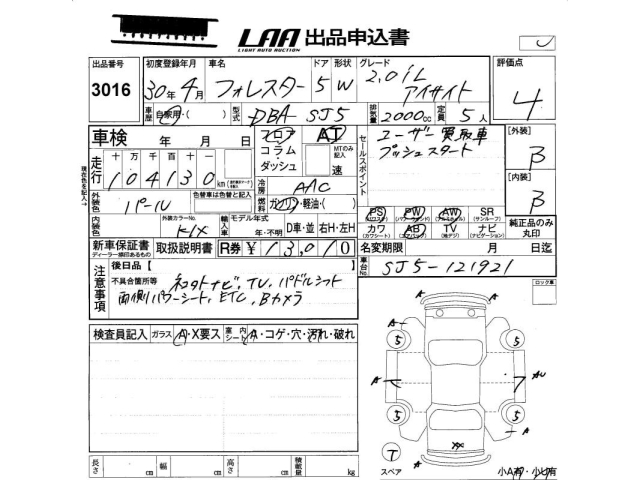 LAA 出品申込書
LIGHT AUTO AUCTION
出品番号
3016
初度登録年月 車名 ドア 形状 グレード 評価点
30年4月 フォレスター 5 W 2.0i L アイサイト 4
車歴 自家用・( ) 型式 DBA SJ5 排気量 2000cc 定員 5人
車検 年 月 日
フロア AT
コラム・ MTのみ記入
ダッシュ 速
セールスポイント
ユーザー買取車
プッシュスタート
[外装]
B
[内装]
B
走行 十 万 千 百 十 一
104130 km
冷房 AAC
燃料 ガソリン・軽油・( )
外装色 パール
色替車は色替と記入
外装カラーNo. K1X
輸入車 モデル年式 年・不明 D車・並 右H・左H
PS (パワーステアリング) PW (パワーウインド) AW (アルミホイル) SR (サンルーフ)
カワ (カワシート) AB (エアバッグ) TV (地デジ) ナビ (ナビゲーション)
純正品のみ丸印
新車保証書 ディーラー捺印あるもの
取扱説明書
R券 ¥13,010
名変期限 月 日迄
車台No. SJ5-121921
ロック車
注意事項
後日品 [
不具合箇所等 ネットナビ、TV、パドルシフト
両側パワーシート、ETC、Bカメラ
検査員記入 ガラス A・X要ス 室内 シート A・コゲ・穴・汚れ・破れ
A
A
5 5
A AU
5 5
A A
XX
T
スペア
A
小A有・小U有
長さ cm 幅 cm 高さ cm 積載量 kg